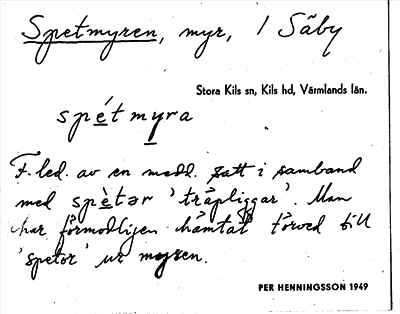 Spetmyren, myr, 1 Säby
Stora Kils sn, Kils hd, Värmlands län.
spétmyra
F. led. av en medd. satt i samband
med spètər 'träpliggar'. Man
har förmodligen hämtat törved till
'spetor' ur myren.
PER HENNINGSSON 1949